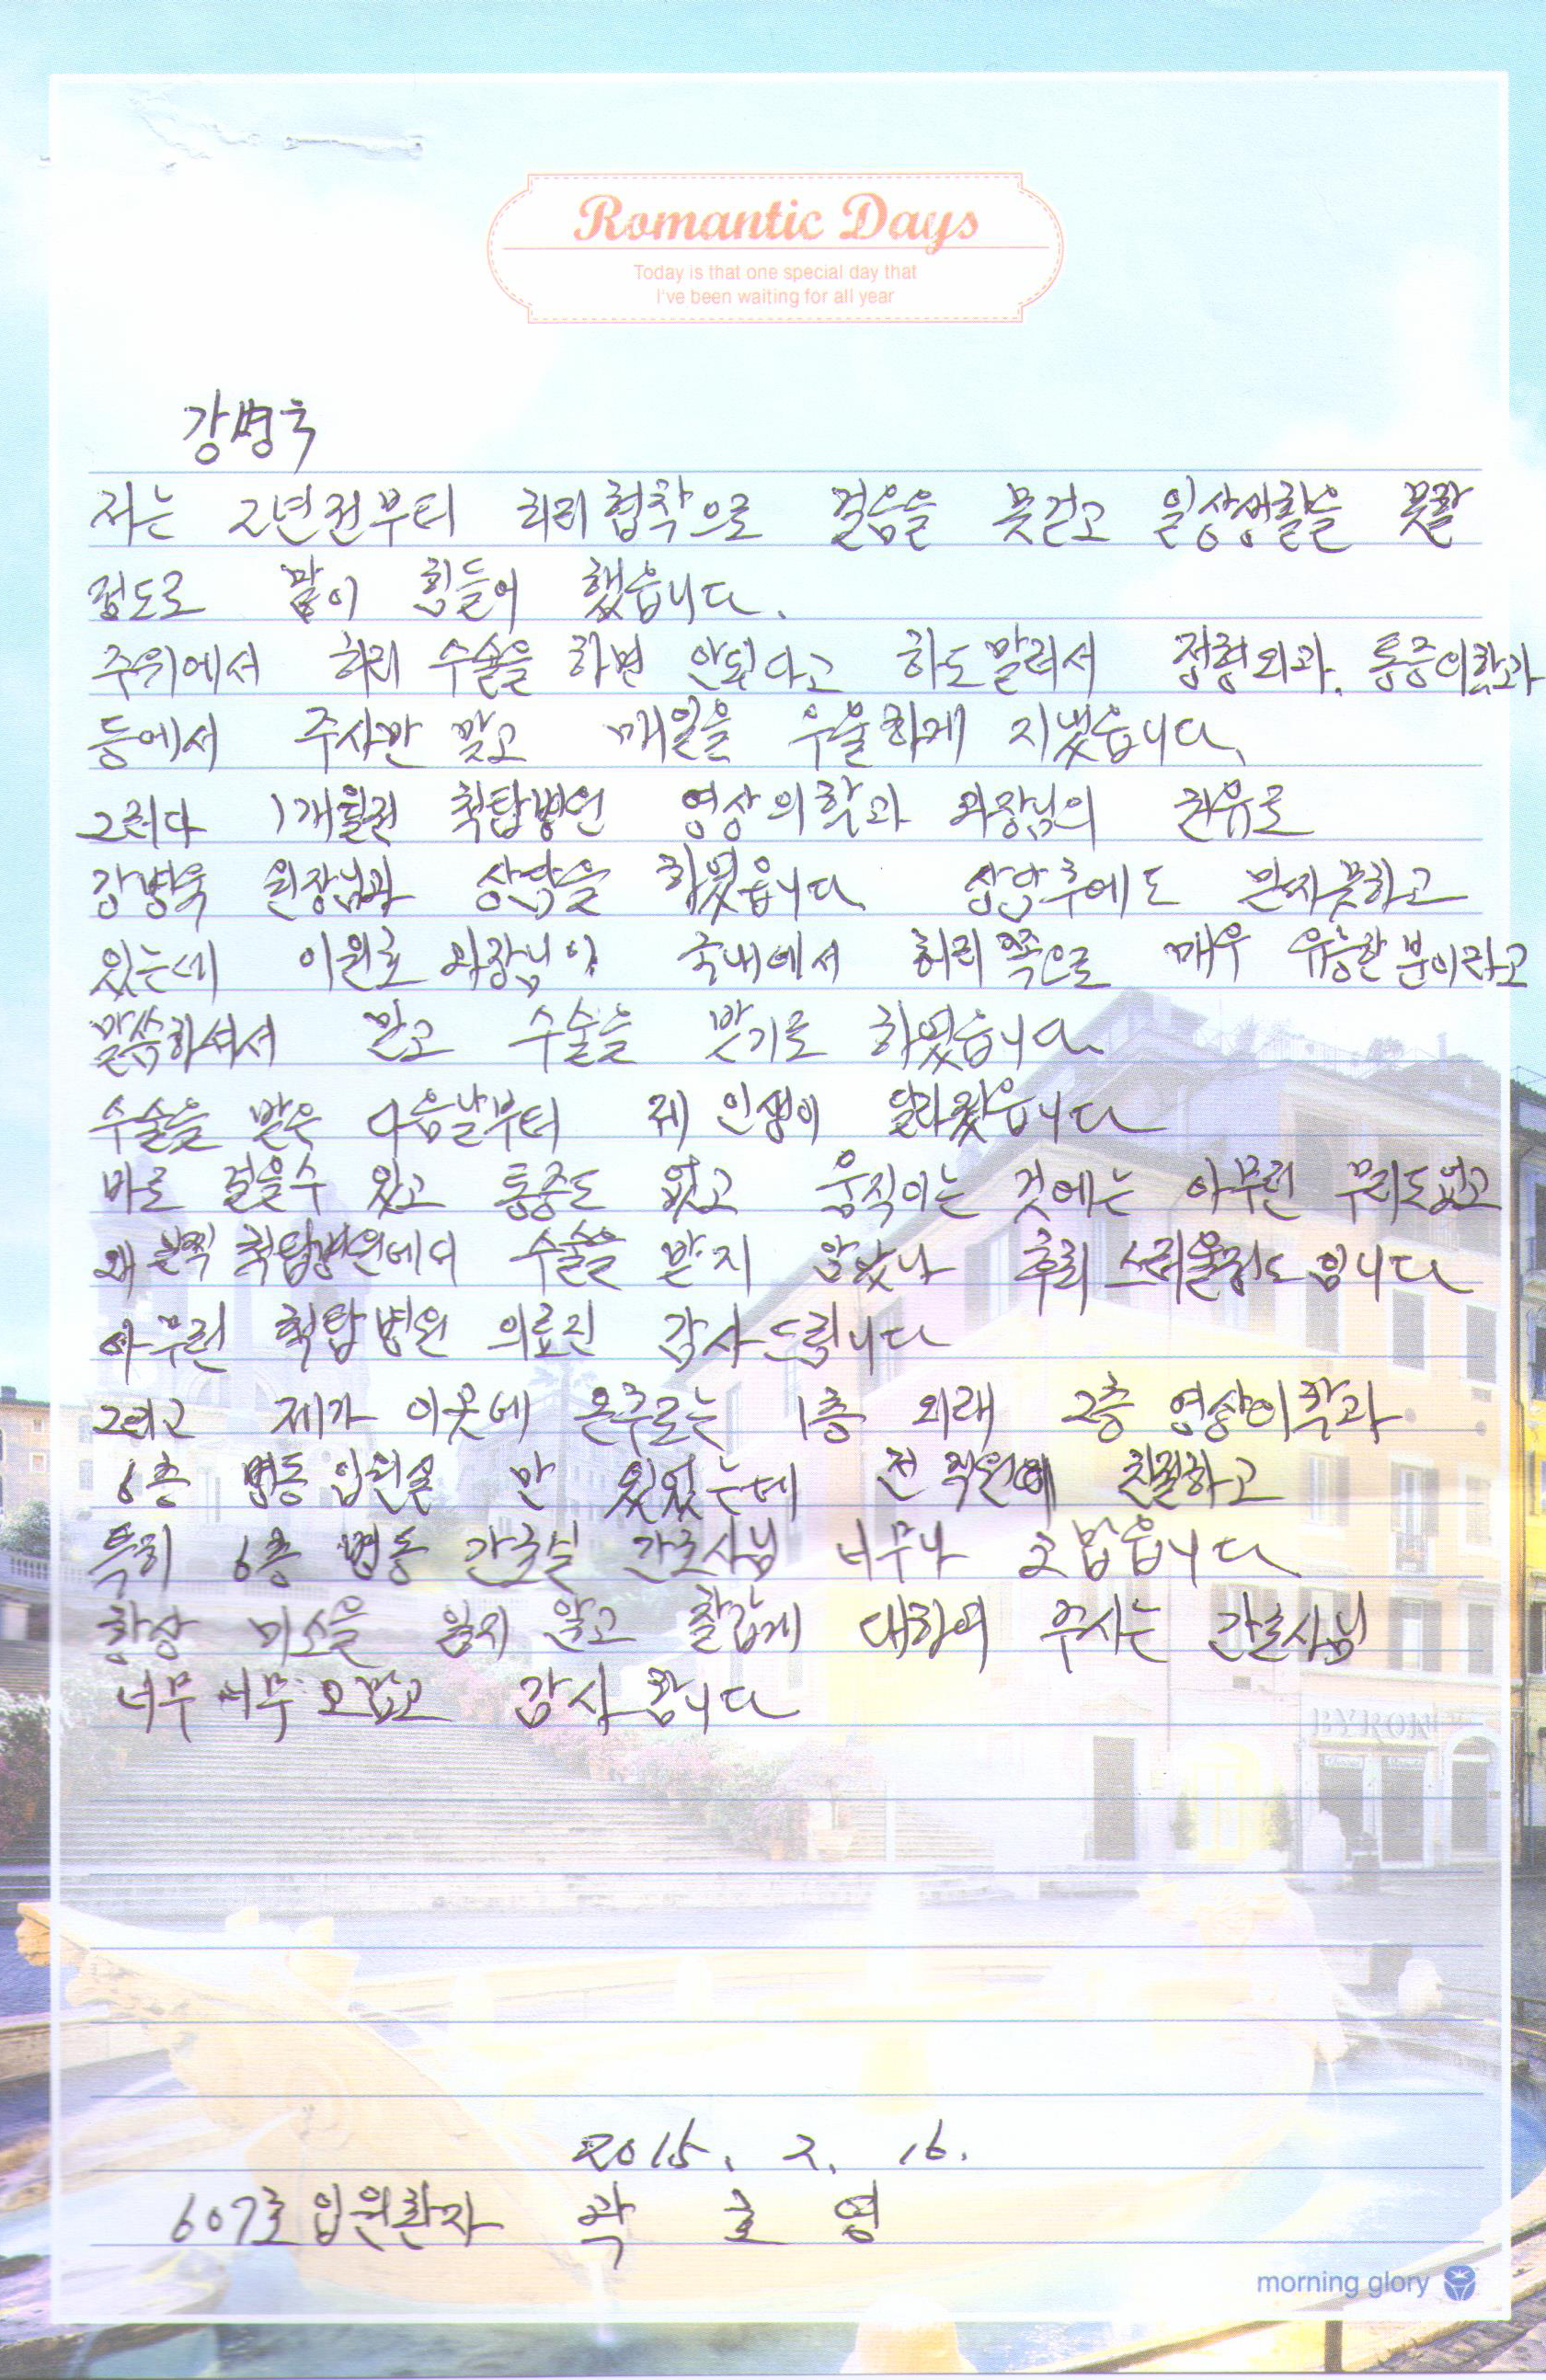 Romantic Days
Today is that one special day that
I've been waiting for all year
강병욱
저는 2년전부터 허리협착으로 걸음을 못걷고 일상생활을 못할
정도로 많이 힘들어 했읍니다.
주위에서 허리 수술을 하면 안된다고 하도말려서 정형외과, 통증의학과
등에서 주사만 맞고 매일을 우울하게 지냈읍니다.
그러다 1개월전 척탑병원 영상의학과 과장님의 권유로
강병욱 원장님과 상담을 하였읍니다 상담후에도 믿지못하고
있는데 이원호 과장님이 국내에서 허리쪽으로 매우 유능한분이라고
말씀하셔서 믿고 수술을 받기로 하였읍니다.
수술을 받은 다음날부터 제 인생이 달라졌읍니다
바로 걸을수 있고 통증도 없고 움직이는 것에는 아무런 무리도없고
왜 일찍 척탑병원에서 수술을 받지 않았나 후회 스러울정도 입니다
아무런 척탑병원 의료진 감사드립니다
그리고 제가 이곳에 온후로는 1층 외래 2층 영상의학과
6층 병동 입원실 만 있었는데 전직원에 친절하고
특히 6층 병동 간호실 간호사님 너무나 고맙읍니다
항상 미소을 잃지 않고 살갑게 대하여 주시는 간호사님
너무너무 고맙고 감사 합니다
2015. 2. 16.
607호입원환자 곽 호 영
morning glory